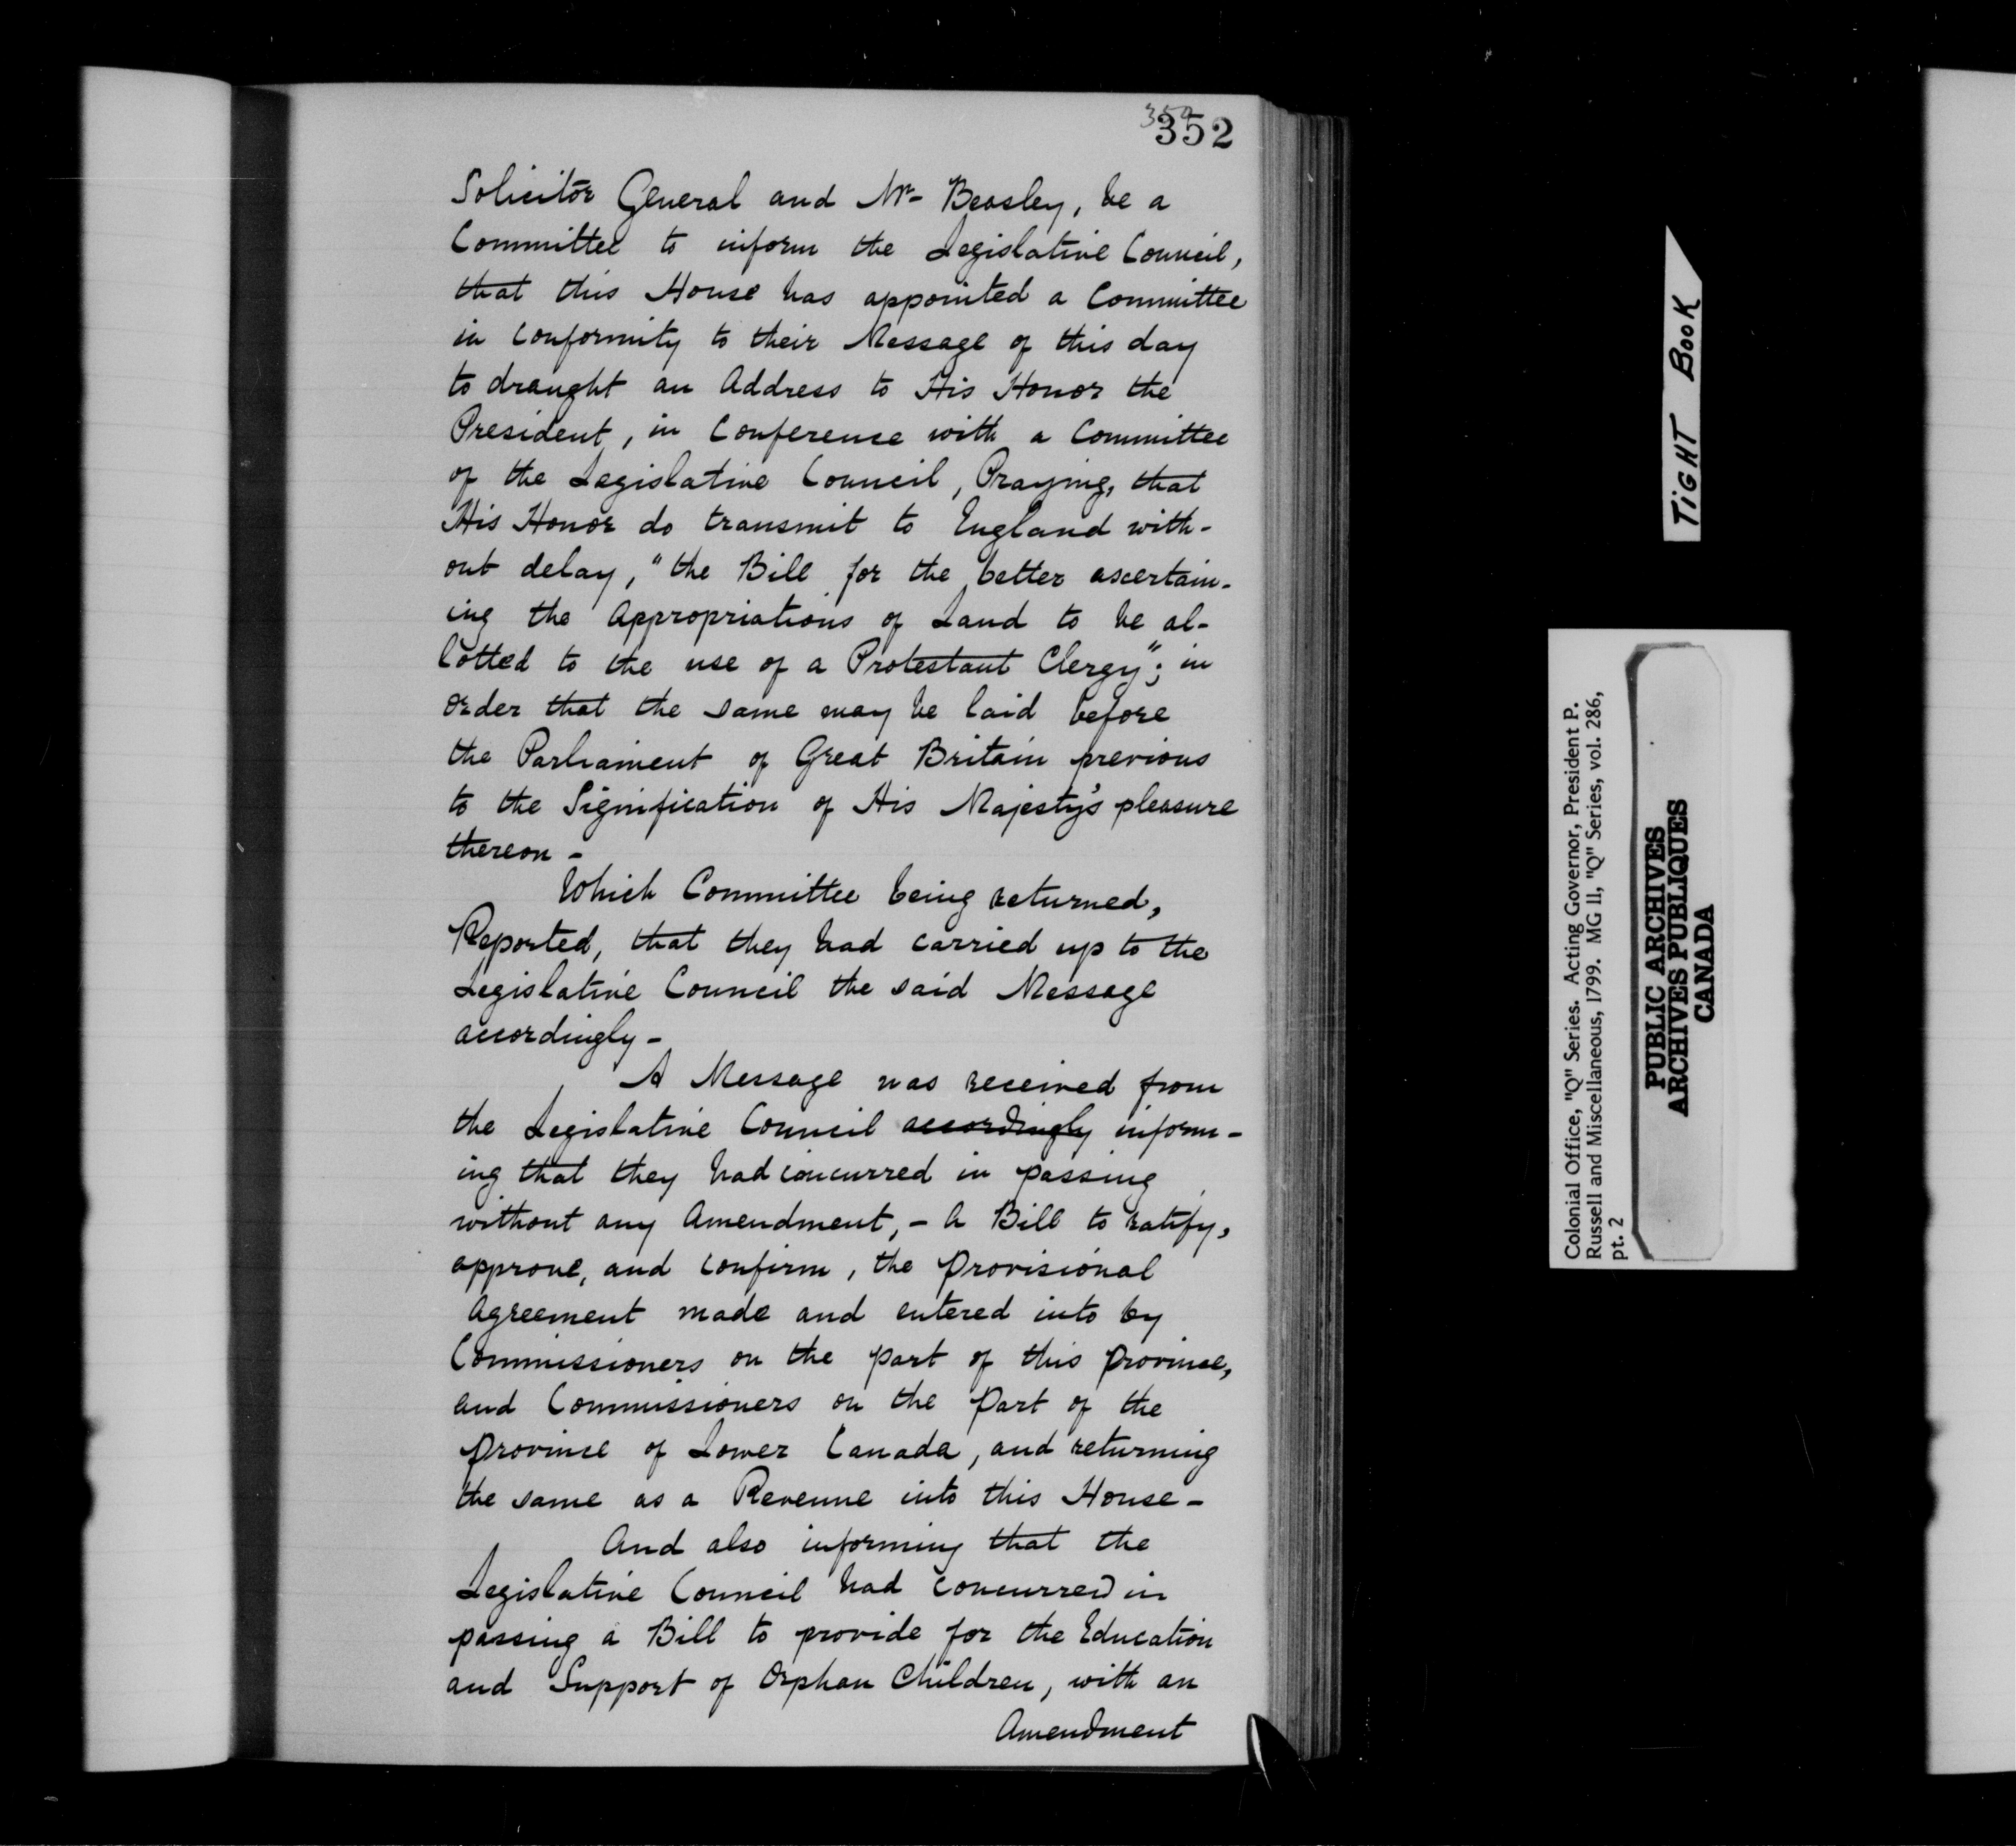 352
Solicitor General and Mr. Beasley, be a
Committee to inform the Legislative Council,
that this House has appointed a Committee
in conformity to their Message of this day
to draught an Address to His Honor the
President, in Conference with a Committee
of the Legislative Council, Praying, that
His Honor do transmit to England with-
out delay, "the Bill for the better ascertain-
ing the Appropriations of Land to be al-
lotted to the use of a Protestant Clergy"; in
order that the same may be laid before
the Parliament of Great Britain previous
to the Signification of His Majesty's pleasure
thereon -
Which Committee being returned,
Reported, that they had carried up to the
Legislative Council the said Message
accordingly -
A Message was received from
the Legislative Council accordingly inform-
ing that they had concurred in passing
without any Amendment, - A Bill to ratify,
approve, and confirm, the Provisional
Agreement made and entered into by
Commissioners on the part of this Province,
and Commissioners on the Part of the
Province of Lower Canada, and returning
the same as a Revenue into this House -
And also informing that the
Legislative Council had concurred in
passing a Bill to provide for the Education
and Support of Orphan Children, with an
Amendment
TIGHT BOOK
Colonial Office, "Q" Series. Acting Governor, President P.
Russell and Miscellaneous, 1799. MG 11, "Q" Series, vol. 286,
pt. 2
PUBLIC ARCHIVES
ARCHIVES PUBLIQUES
CANADA